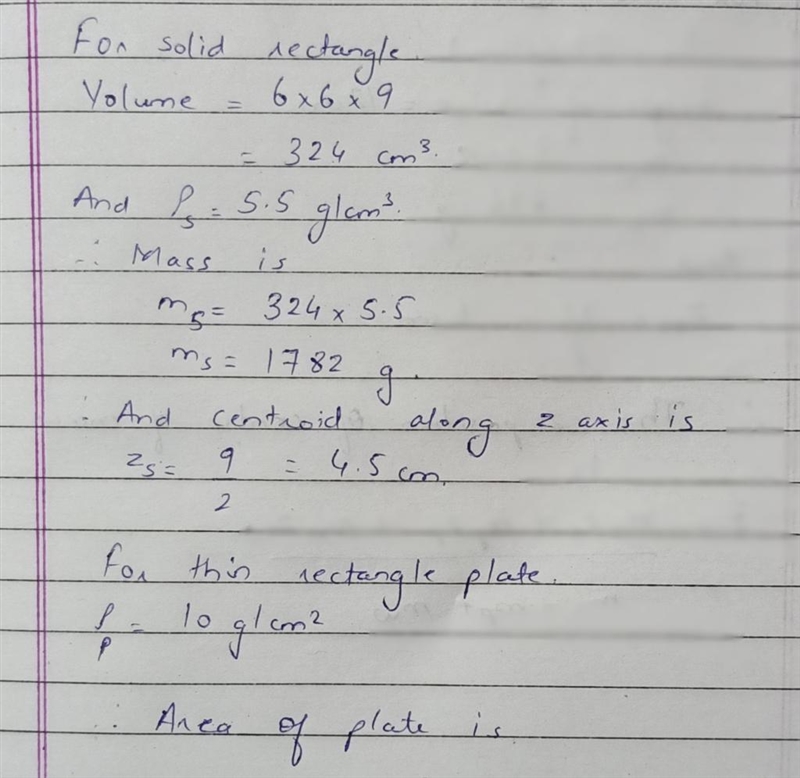 For solid rectangle.
Volume = 6 x 6 x 9
= 324 cm³.
And ρs = 5.5 g/cm³.
∴ Mass is
ms = 324 x 5.5
ms = 1782 g.
∴ And centroid along z axis is
zs = 9/2 = 4.5 cm.
For thin rectangle plate.
ρp = 10 g/cm²
∴ Area of plate is